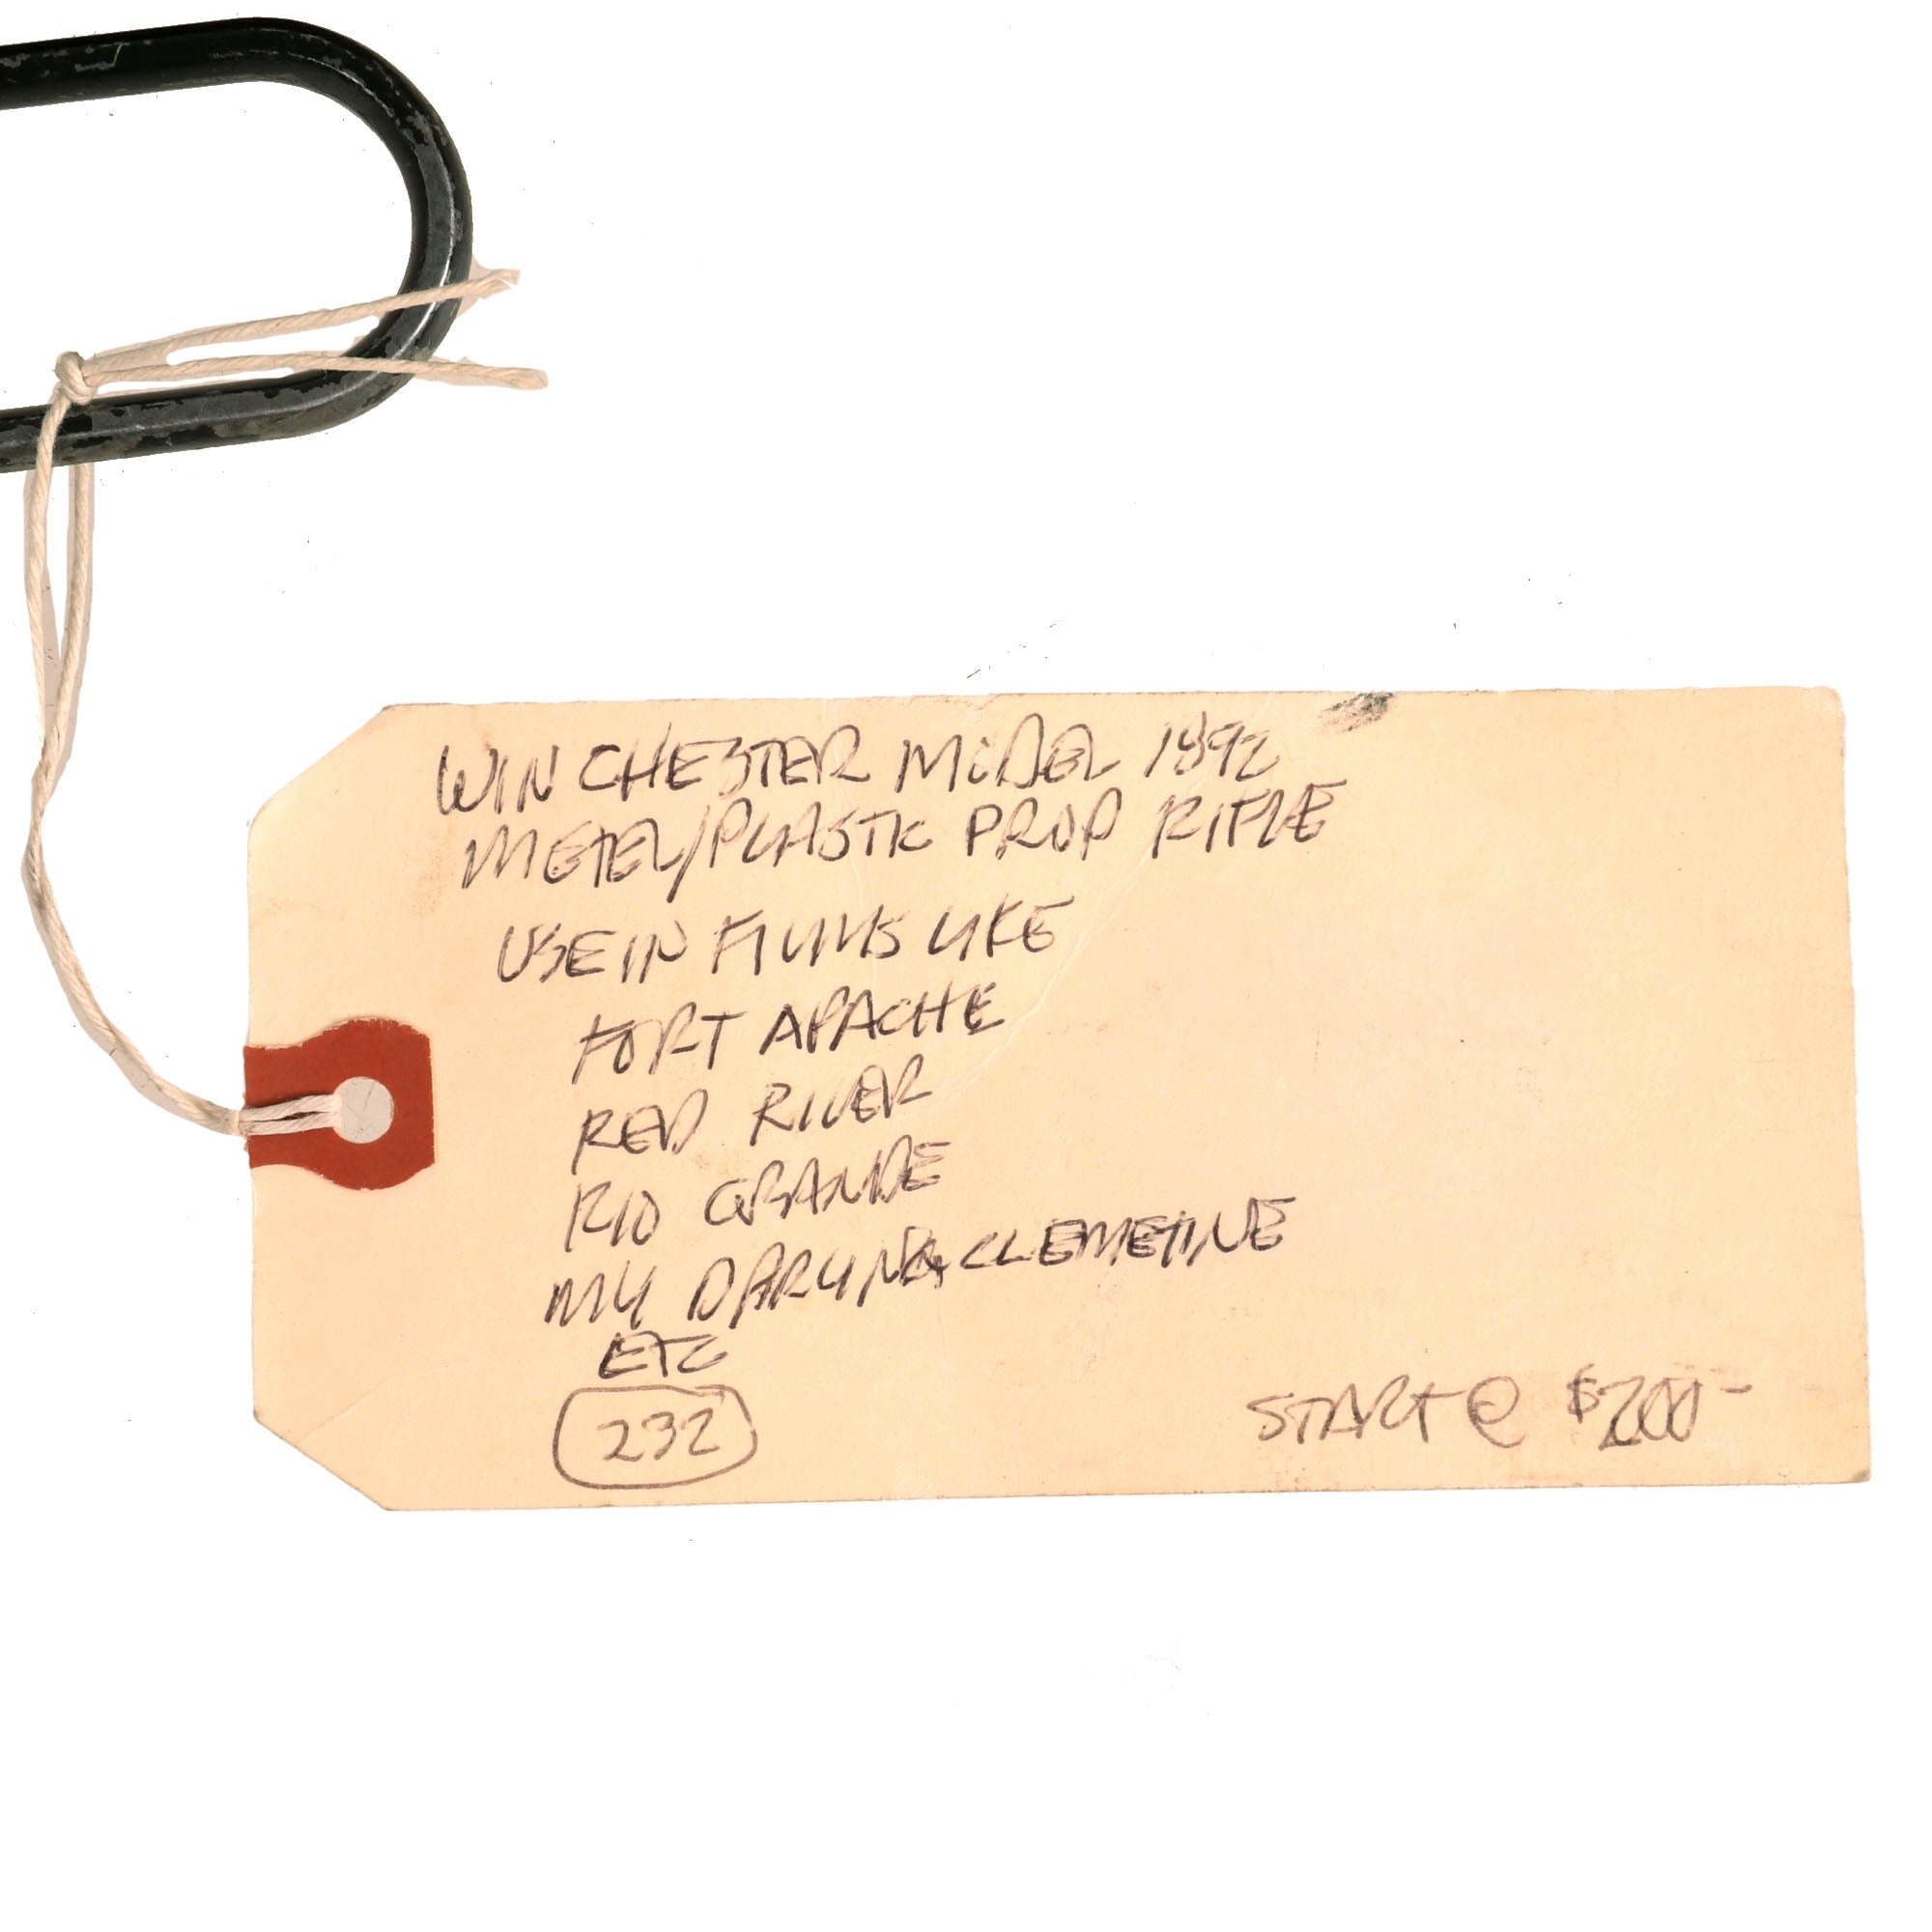 WINCHESTER MODEL 1892
METEL/PLASTIC PROP RIFLE
USE IN FILMS LIKE
FORT APACHE
RED RIVER
RIO GRANDE
MY DARLING CLEMETINE
ETC
232
START @ $200-